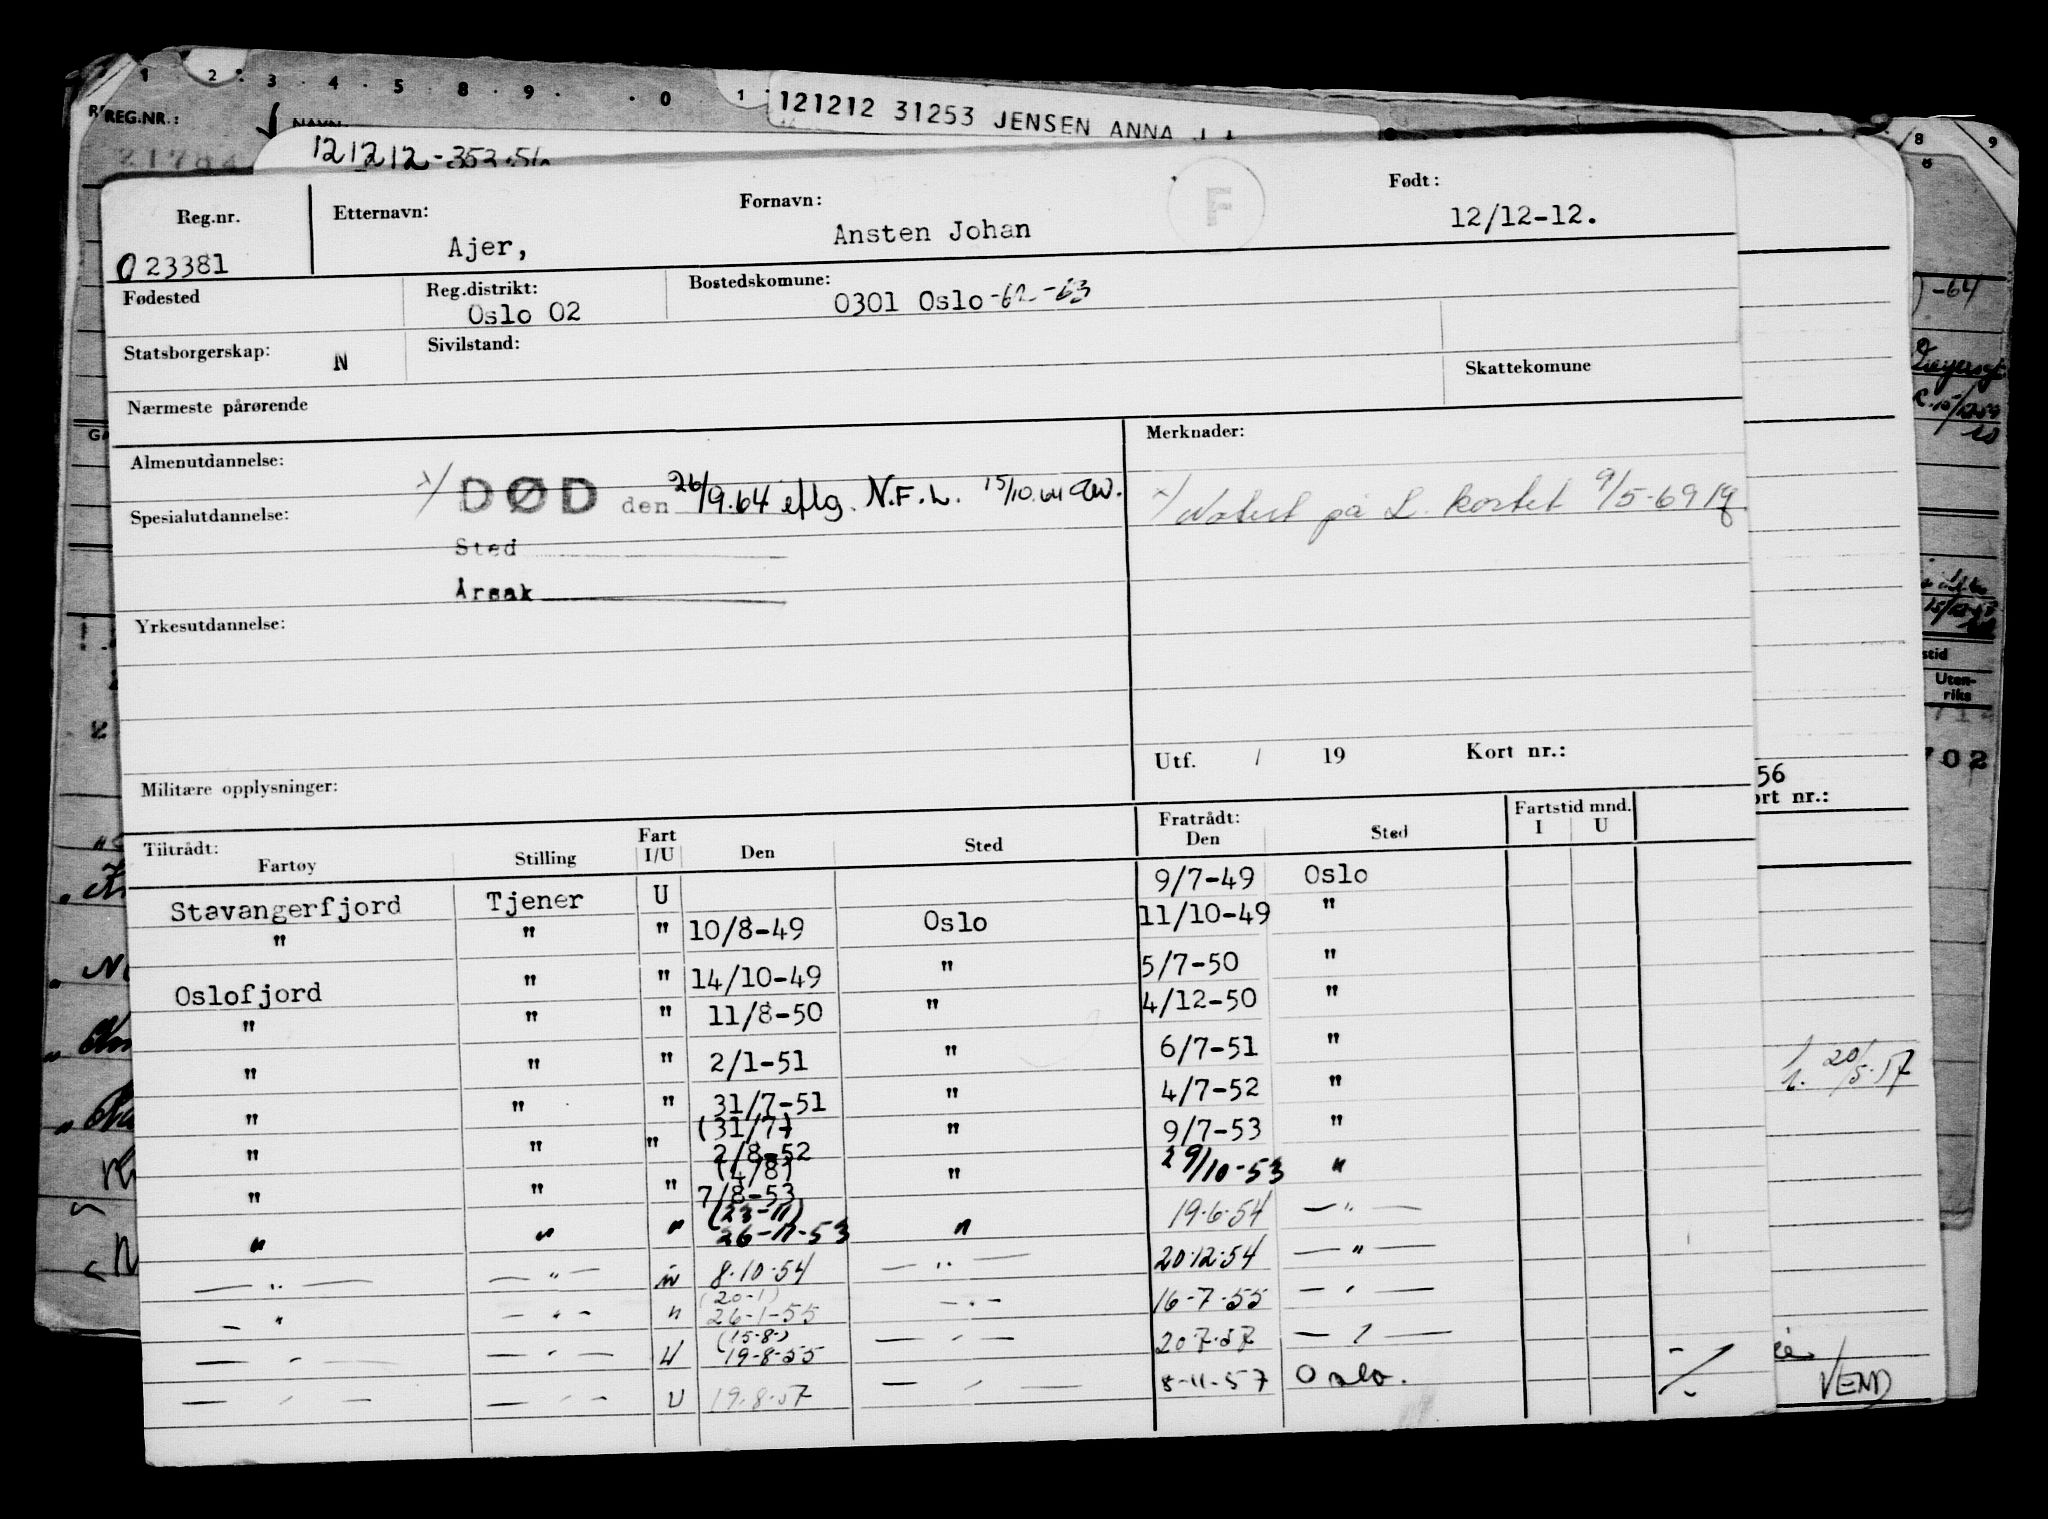 1 2 3 4 5 8 9 0 1
REG.NR.:
NAVN
121212 31253 JENSEN ANNA
121212-353.56
8 9
Reg.nr. Etternavn: Fornavn: F Født:
023381 Ajer, Ansten Johan 12/12-12.
Fødested Reg.distrikt: Bostedskomune:
Oslo 02 0301 Oslo -62 -63
Statsborgerskap: N Sivilstand:
Nærmeste pårørende Skattekomune
Almenutdannelse: Merknader:
x/ DØD den 26/9.64 eflg. N.F.L. 15/10.64 aw. x/ Notert på L. kortet 9/5-69
Spesialutdannelse:
Sted
Årsak
Yrkesutdannelse:
Utf. / 19 Kort nr.:
Militære opplysninger:
Tiltrådt: Fart Fratrådt: Fartstid mnd.
Fartøy Stilling I/U Den Sted Den Sted I U
Stavangerfjord Tjener U 9/7-49 Oslo
" " " 10/8-49 Oslo 11/10-49 "
Oslofjord " " 14/10-49 " 5/7-50 "
" " " 11/8-50 " 4/12-50 "
" " " 2/1-51 " 6/7-51 "
" " " 31/7-51 " 4/7-52 "
(31/7)
" " " 2/8-52 " 9/7-53 "
(4/8)
" " " 7/8-53 " 29/10-53 "
(23-11)
" " " 26-11-53 " 19.6.54 — " —
— " — — " — " 8.10.54 — " — 20.12.54 — " —
(20-1)
— " — " — " 26-1-55 — " — 16-7-55 — " —
(15-8-)
— " — — " — U 19-8-55 — " — 20.7.57 — " —
— " — — " — U 19.8.57 — " — 8-11-57 Oslo.
-64
stid
Uten-
riks
702
56
ort nr.:
20/5.57
VEND